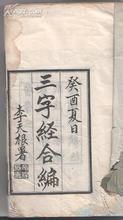 癸酉夏日
三字経合編
李天根署